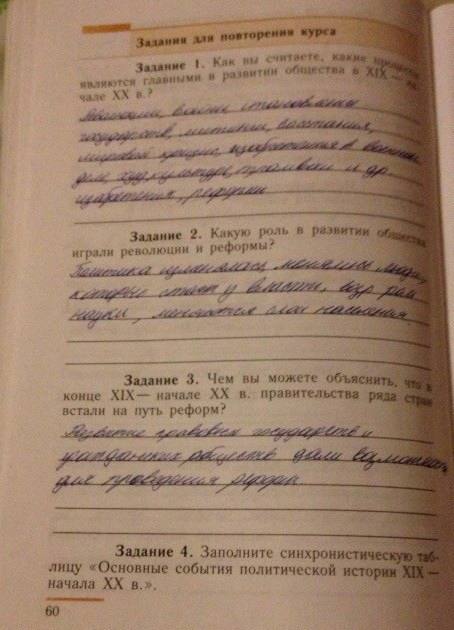 Задания для повторения курса
Задание 1. Как вы считаете, какие
являются главными в развитии общества в XIX — на-
чале XX в.?
Революции, войны, становление
государств, митинги, восстания,
мировой кризис, изобретения в военном
деле, худ. культуре, и др.
изобретения, реформы
Задание 2. Какую роль в развитии общества
играли революции и реформы?
Политика изменялась, менялись люди,
которые стоят у власти,
науки, меняются слои населения.
Задание 3. Чем вы можете объяснить, что в
конце XIX — начале XX в. правительства ряда стран
встали на путь реформ?
Развитие правовых государств и
гражданских обществ дали возможность
для проведения реформ
Задание 4. Заполните синхронистическую таб-
лицу «Основные события политической истории XIX —
начала XX в.».
60